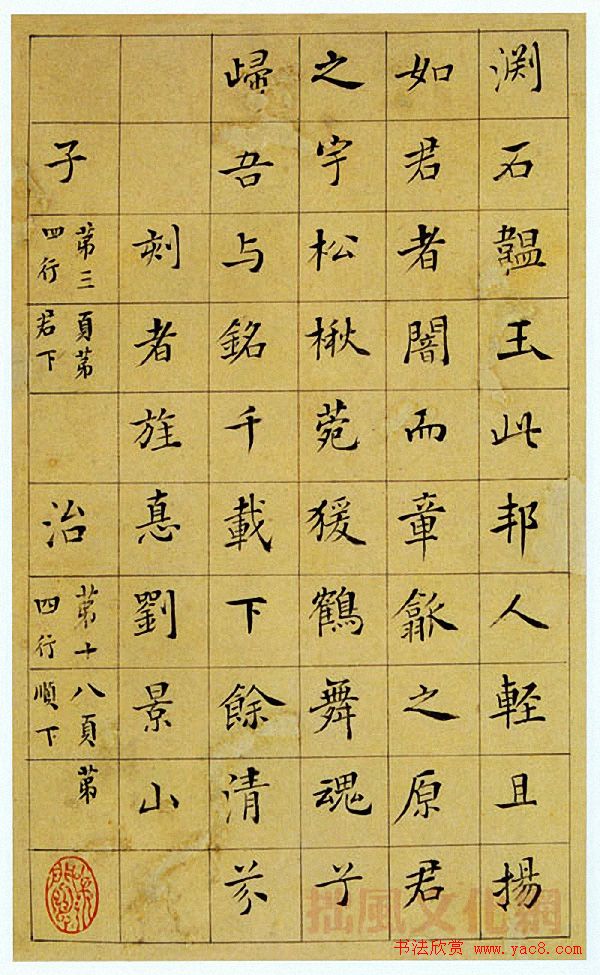 渕石韞玉此邦人軽且揚
如君者闇而章龢之原君
之宇松楸菀猨鶴舞魂兮
歸吾与銘千載下餘清芬
刻者旌惪劉景山
子 第三頁第四行君下 治 第十八頁第四行順下
拙風文化網
书法欣赏 www.yac8.com